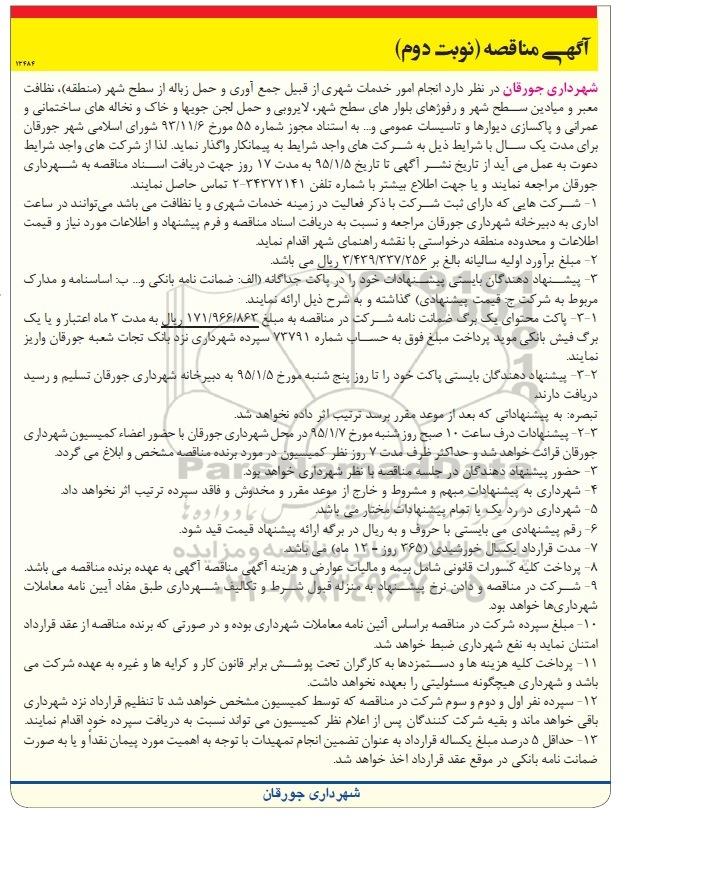 آگهی مناقصه (نوبت دوم)
۱۳۴۸۴
شهرداری جورقان در نظر دارد انجام امور خدمات شهری از قبیل جمع آوری و حمل زباله از سطح شهر (منطقه)، نظافت
معبر و میادین سطح شهر و رفوژهای بلوار های سطح شهر، لایروبی و حمل لجن جویها و خاک و نخاله های ساختمانی و
عمرانی و پاکسازی دیوارها و تاسیسات عمومی و... به استناد مجوز شماره ۵۵ مورخ ۹۳/۱۱/۶ شورای اسلامی شهر جورقان
برای مدت یک سال با شرایط ذیل به شرکت های واجد شرایط به پیمانکار واگذار نماید. لذا از شرکت های واجد شرایط
دعوت به عمل می آید از تاریخ نشر آگهی تا تاریخ ۹۵/۱/۵ به مدت ۱۷ روز جهت دریافت اسناد مناقصه به شهرداری
جورقان مراجعه نمایند و یا جهت اطلاع بیشتر با شماره تلفن ۳۴۳۷۲۱۴۱-۲ تماس حاصل نمایند.
۱- شرکت هایی که دارای ثبت شرکت با ذکر فعالیت در زمینه خدمات شهری و یا نظافت می باشد می‌توانند در ساعت
اداری به دبیرخانه شهرداری جورقان مراجعه و نسبت به دریافت اسناد مناقصه و فرم پیشنهاد و اطلاعات مورد نیاز و قیمت
اطلاعات و محدوده منطقه درخواستی با نقشه راهنمای شهر اقدام نماید.
۲- مبلغ برآورد اولیه سالیانه بالغ بر ۳/۴۳۹/۳۳۷/۲۵۶ ریال می باشد.
۳- پیشنهاد دهندگان بایستی پیشنهادات خود را در پاکت جداگانه (الف: ضمانت نامه بانکی و... ب: اساسنامه و مدارک
مربوط به شرکت ج: قیمت پیشنهادی) گذاشته و به شرح ذیل ارائه نمایند.
۳-۱- پاکت محتوای یک برگ ضمانت نامه شرکت در مناقصه به مبلغ ۱۷۱/۹۶۶/۸۶۳ ریال به مدت ۳ ماه اعتبار و یا یک
برگ فیش بانکی موید پرداخت مبلغ فوق به حساب شماره ۷۳۷۹۱ سپرده شهرداری نزد بانک تجات شعبه جورقان واریز
نمایند.
۳-۲- پیشنهاد دهندگان بایستی پاکت خود را تا روز پنج شنبه مورخ ۹۵/۱/۵ به دبیرخانه شهرداری جورقان تسلیم و رسید
دریافت دارند.
تبصره: به پیشنهاداتی که بعد از موعد مقرر برسد ترتیب اثر داده نخواهد شد.
۲-۳- پیشنهادات درف ساعت ۱۰ صبح روز شنبه مورخ ۹۵/۱/۷ در محل شهرداری جورقان با حضور اعضاء کمیسیون شهرداری
جورقان قرائت خواهد شد و حداکثر ظرف مدت ۷ روز نظر کمیسیون در مورد برنده مناقصه مشخص و ابلاغ می گردد.
۳- حضور پیشنهاد دهندگان در جلسه مناقصه با نظر شهرداری خواهد بود.
۴- شهرداری به پیشنهادات مبهم و مشروط و خارج از موعد مقرر و مخدوش و فاقد سپرده ترتیب اثر نخواهد داد.
۵- شهرداری در رد یک یا تمام پیشنهادات مختار می باشد.
۶- رقم پیشنهادی می بایستی با حروف و به ریال در برگه ارائه پیشنهاد قیمت قید شود.
۷- مدت قرارداد یکسال خورشیدی (۳۶۵ روز – ۱۲ ماه) می باشد.
۸- پرداخت کلیه کسورات قانونی شامل بیمه و مالیات عوارض و هزینه آگهی مناقصه آگهی به عهده برنده مناقصه می باشد.
۹- شرکت در مناقصه و دادن نرخ پیشنهاد به منزله قبول شرط و تکالیف شهرداری طبق مفاد آیین نامه معاملات
شهرداری‌ها خواهد بود.
۱۰- مبلغ سپرده شرکت در مناقصه براساس آئین نامه معاملات شهرداری بوده و در صورتی که برنده مناقصه از عقد قرارداد
امتنان نماید به نفع شهرداری ضبط خواهد شد.
۱۱- پرداخت کلیه هزینه ها و دستمزدها به کارگران تحت پوشش برابر قانون کار و کرایه ها و غیره به عهده شرکت می
باشد و شهرداری هیچگونه مسئولیتی را بعهده نخواهد داشت.
۱۲- سپرده نفر اول و دوم و سوم شرکت در مناقصه که توسط کمیسیون مشخص خواهد شد تا تنظیم قرارداد نزد شهرداری
باقی خواهد ماند و بقیه شرکت کنندگان پس از اعلام نظر کمیسیون می تواند نسبت به دریافت سپرده خود اقدام نمایند.
۱۳- حداقل ۵ درصد مبلغ یکساله قرارداد به عنوان تضمین انجام تمهیدات با توجه به اهمیت مورد پیمان نقداً و یا به صورت
ضمانت نامه بانکی در موقع عقد قرارداد اخذ خواهد شد.
شهرداری جورقان